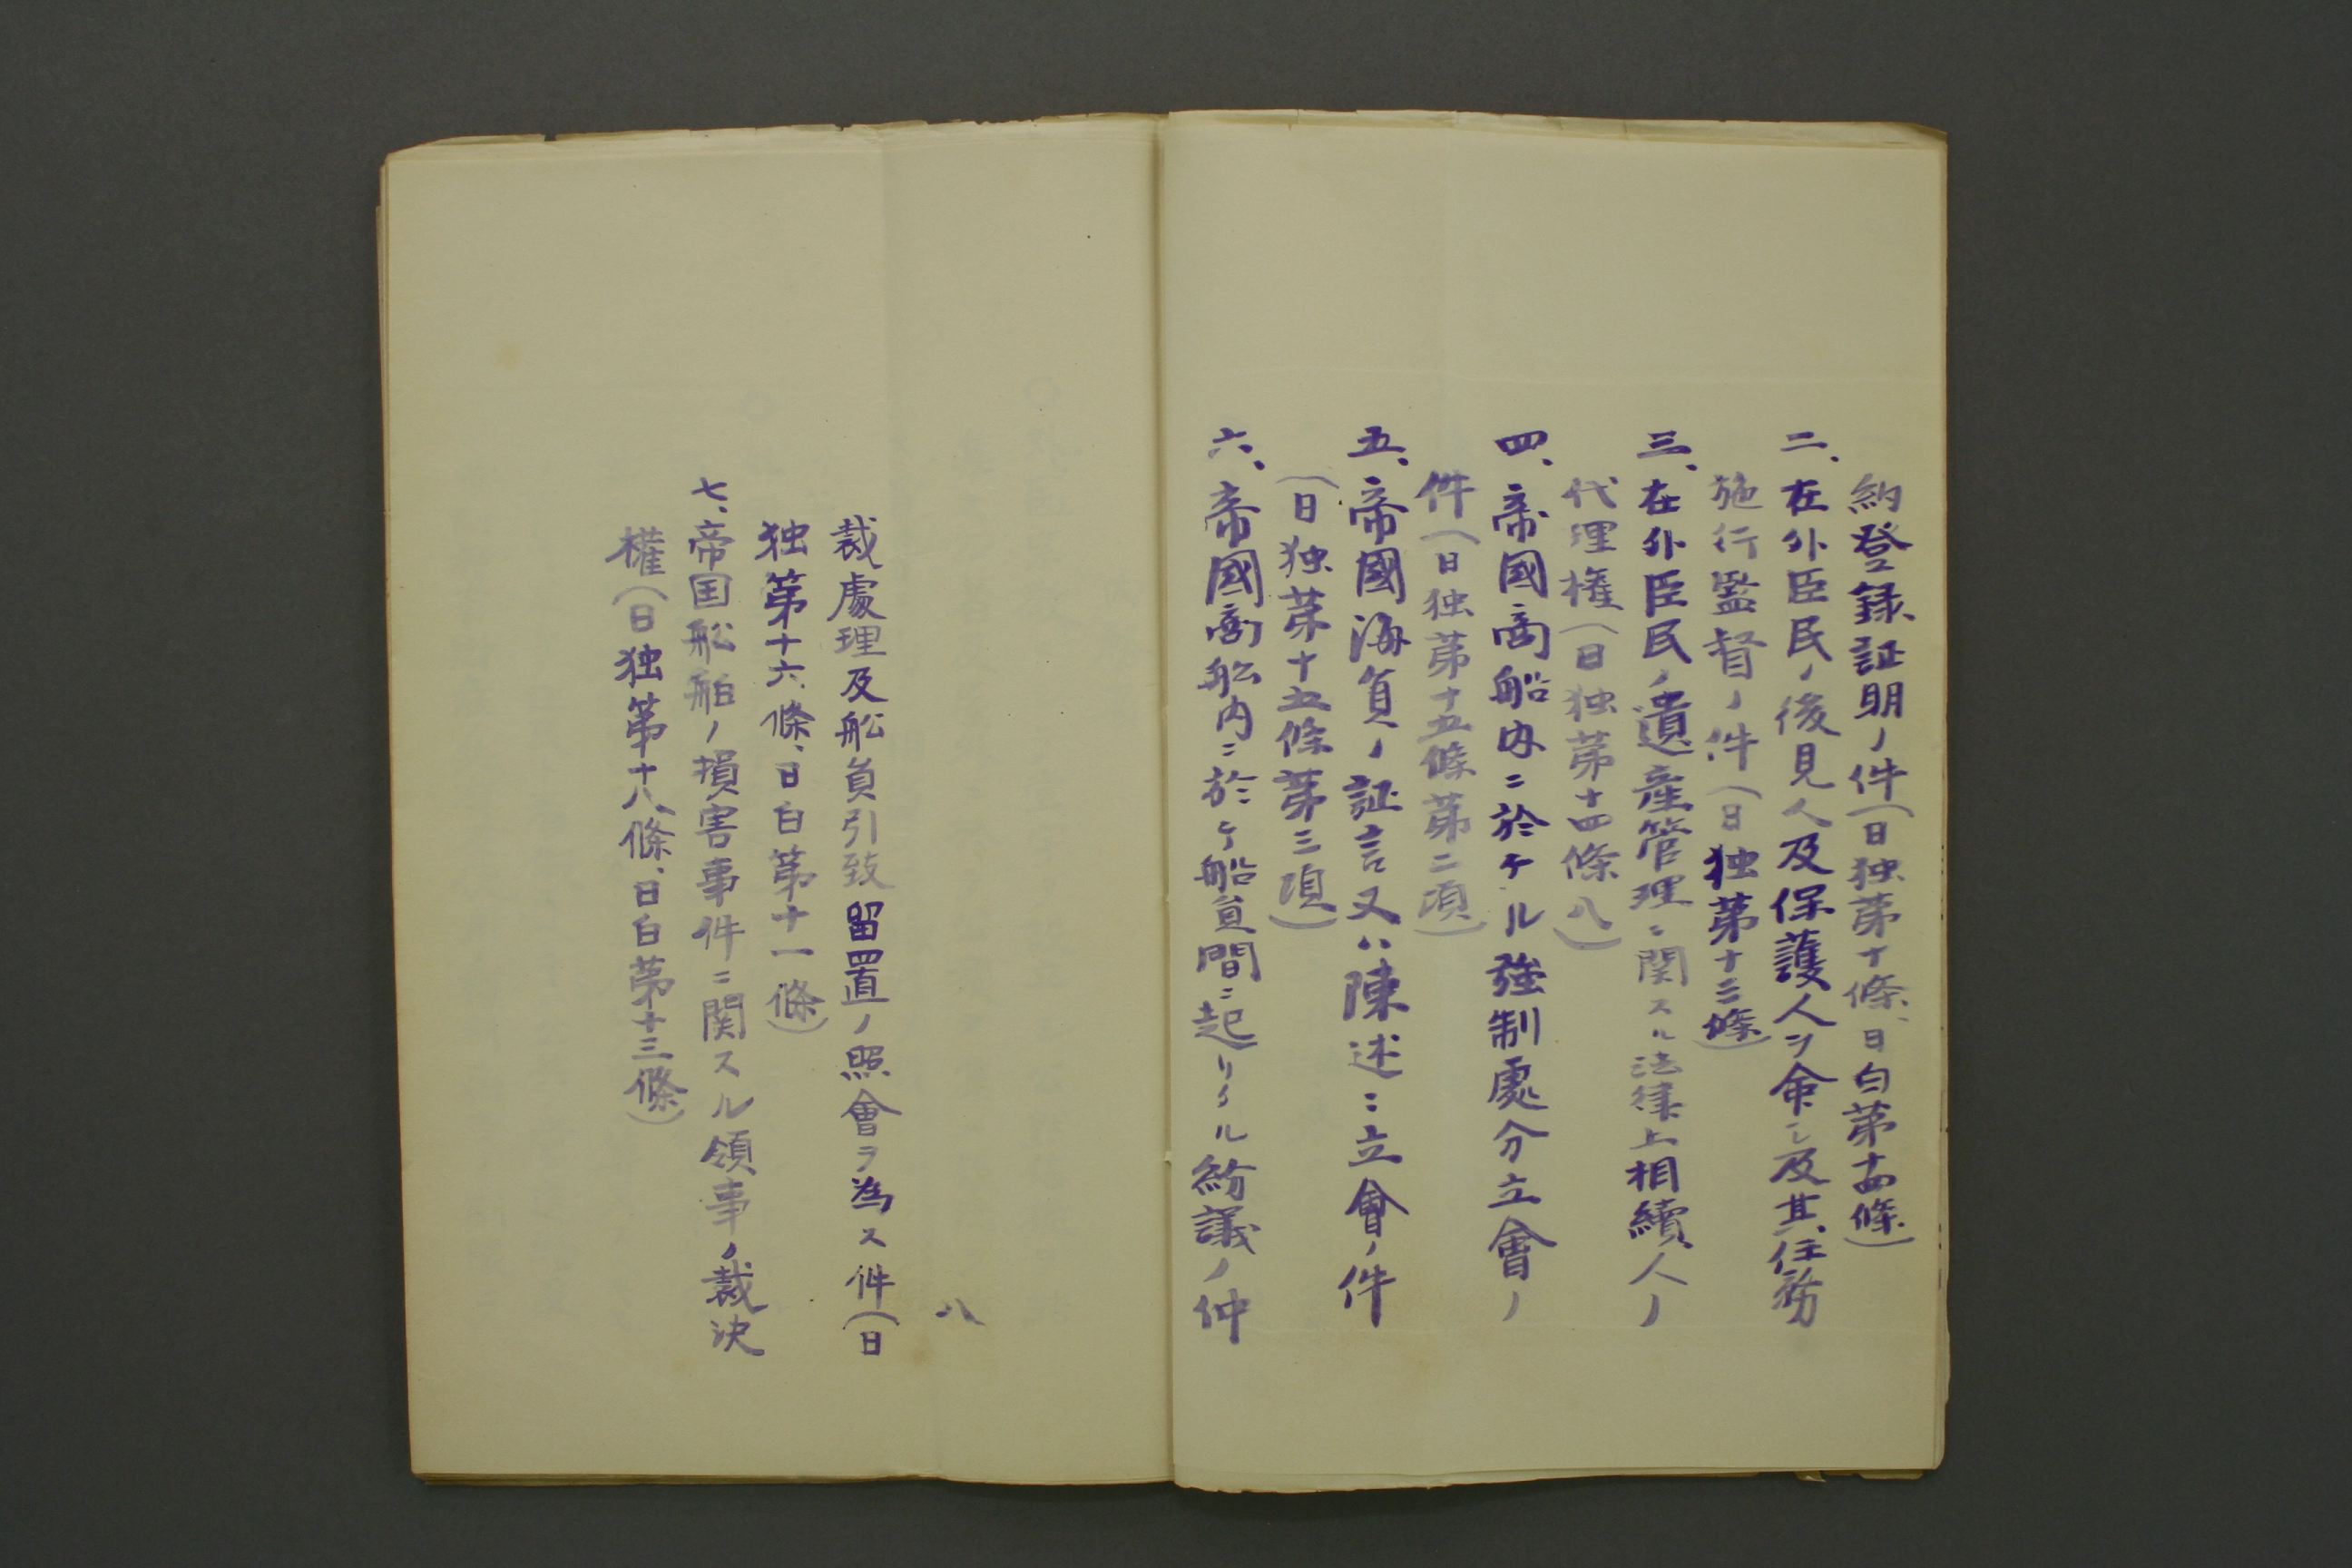 約登録証明ノ件(日独第十條、日白第十四條)
二、在外臣民ノ後見人及保護人ヲ命シ及其任務
施行監督ノ件(日独第十三條)
三、在外臣民ノ遺産管理ニ関スル法律上相續人ノ
代理権(日独第十四條八)
四、帝國商船内ニ於ケル強制處分立會ノ
件(日独第十五條第二項)
五、帝國海員ノ証言又ハ陳述ニ立會ノ件
(日独第十五條第三項)
六、帝國商舩内ニ於テ船員間ニ起リタル紛議ノ仲
裁處理及舩員引致留置ノ照會ヲ為ス件(日
独第十六條、日白第十一條)
七、帝国舩舶ノ損害事件ニ関スル領事ノ裁決
權(日独第十八條、日白第十三條)
八